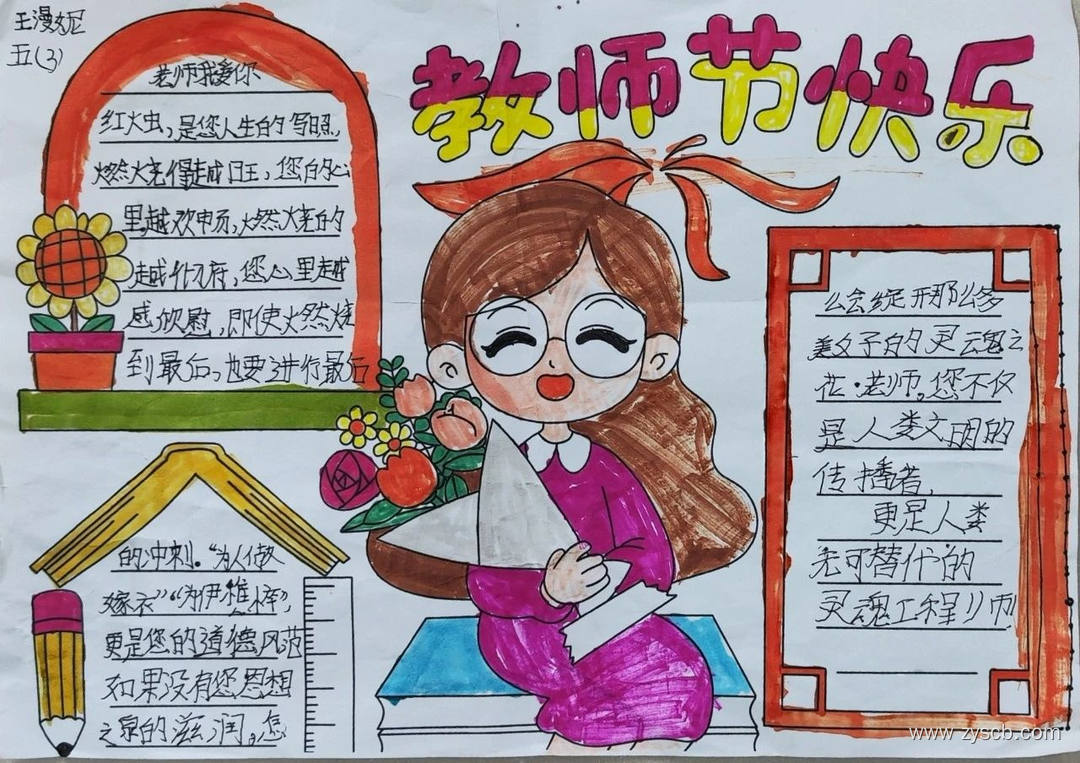 王漫妮
五(3)
教师节快乐
老师我爱你
红火虫,是您人生的写照,
燃烧得越旺,您的心
里越欢畅,燃烧的
越彻府,您心里越
感欣慰,即使燃烧
到最后,也要进行最后
的冲刺。“为人做
嫁衣”“为伊
更是您的道德风范
如果没有您思想
之泉的滋润,怎
么会绽开那么多
美女子的灵魂之
花·老师,您不仅
是人类文明的
传播者,
更是人类
无可替代的
灵魂工程师
www.zyscb.com